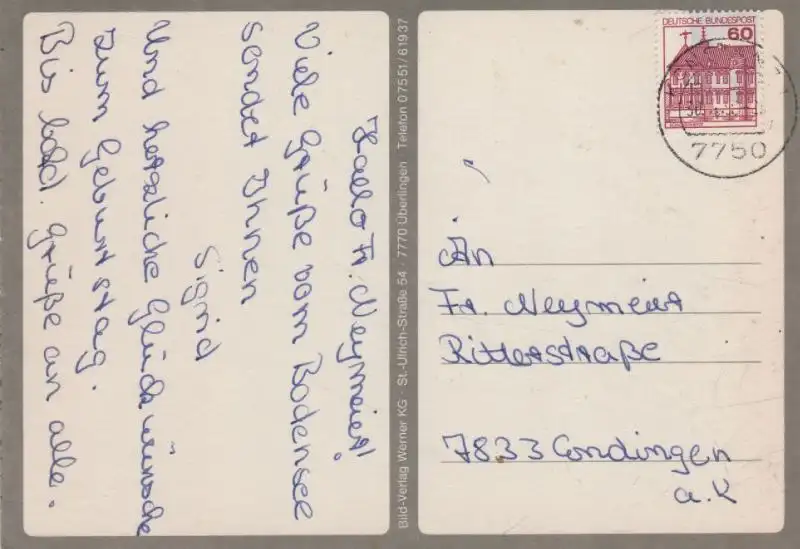 Hallo Fr. Neymeier!
Viele Grüße vom Bodensee
sendet Ihnen
Sigrid
Und herzliche Glückwünsche
zum Geburtstag.
Bis bald. Grüße an alle.
Bild-Verlag Werner KG · St.-Ulrich-Straße 54 · 7770 Überlingen Telefon 07551/61937
DEUTSCHE BUNDESPOST
60
7750
An
Fr. Neymeier
Ritterstraße
7833 Endingen
a.K